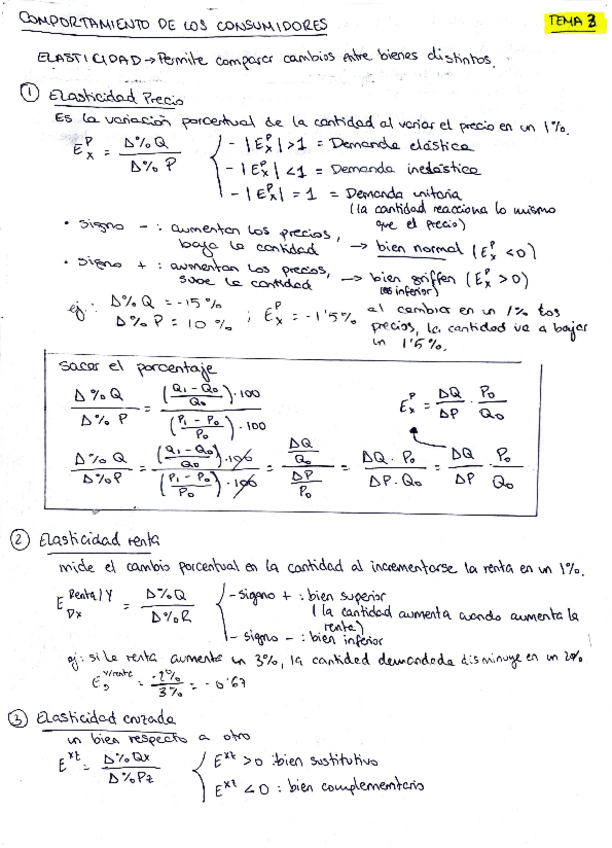 COMPORTAMIENTO DE LOS CONSUMIDORES
TEMA 3
ELASTICIDAD → Permite comparar cambios entre bienes distintos.
① Elasticidad Precio
Es la variación porcentual de la cantidad al variar el precio en un 1%.
E^P_X = Δ%Q / Δ%P
- |E^P_X| > 1 = Demanda elástica
- |E^P_X| < 1 = Demanda inelástica
- |E^P_X| = 1 = Demanda unitaria
(la cantidad reacciona lo mismo
que el precio)
• Signo - : aumentan los precios,
baja la cantidad → bien normal (E^P_X < 0)
• Signo + : aumentan los precios,
sube la cantidad → bien griffen (E^P_X > 0)
(es inferior)
ej: Δ%Q = -15%
Δ%P = 10% ; E^P_X = -1'5%
al cambiar en un 1% los
precios, la cantidad va a bajar
un 1'5%.
Sacar el porcentaje
Δ%Q / Δ%P = ((Q1 - Q0)/Q0)·100 / ((P1 - P0)/P0)·100
E^P_X = ΔQ/ΔP · P0/Q0
Δ%Q / Δ%P = ((Q1 - Q0)/Q0)·100 / ((P1 - P0)/P0)·100 = (ΔQ/Q0) / (ΔP/P0) = ΔQ·P0 / ΔP·Q0 = ΔQ/ΔP · P0/Q0
② Elasticidad renta
mide el cambio porcentual en la cantidad al incrementarse la renta en un 1%.
E^Renta/Y_Dx = Δ%Q / Δ%R
- signo + : bien superior
(la cantidad aumenta cuando aumenta la
renta)
- signo - : bien inferior
ej: si la renta aumenta un 3%, la cantidad demandada disminuye en un 2%
E^Y/renta_D = -2% / 3% = -0'67
③ Elasticidad cruzada
un bien respecto a otro
E^xz = Δ%Qx / Δ%Pz
E^xz > 0 : bien sustitutivo
E^xz < 0 : bien complementario